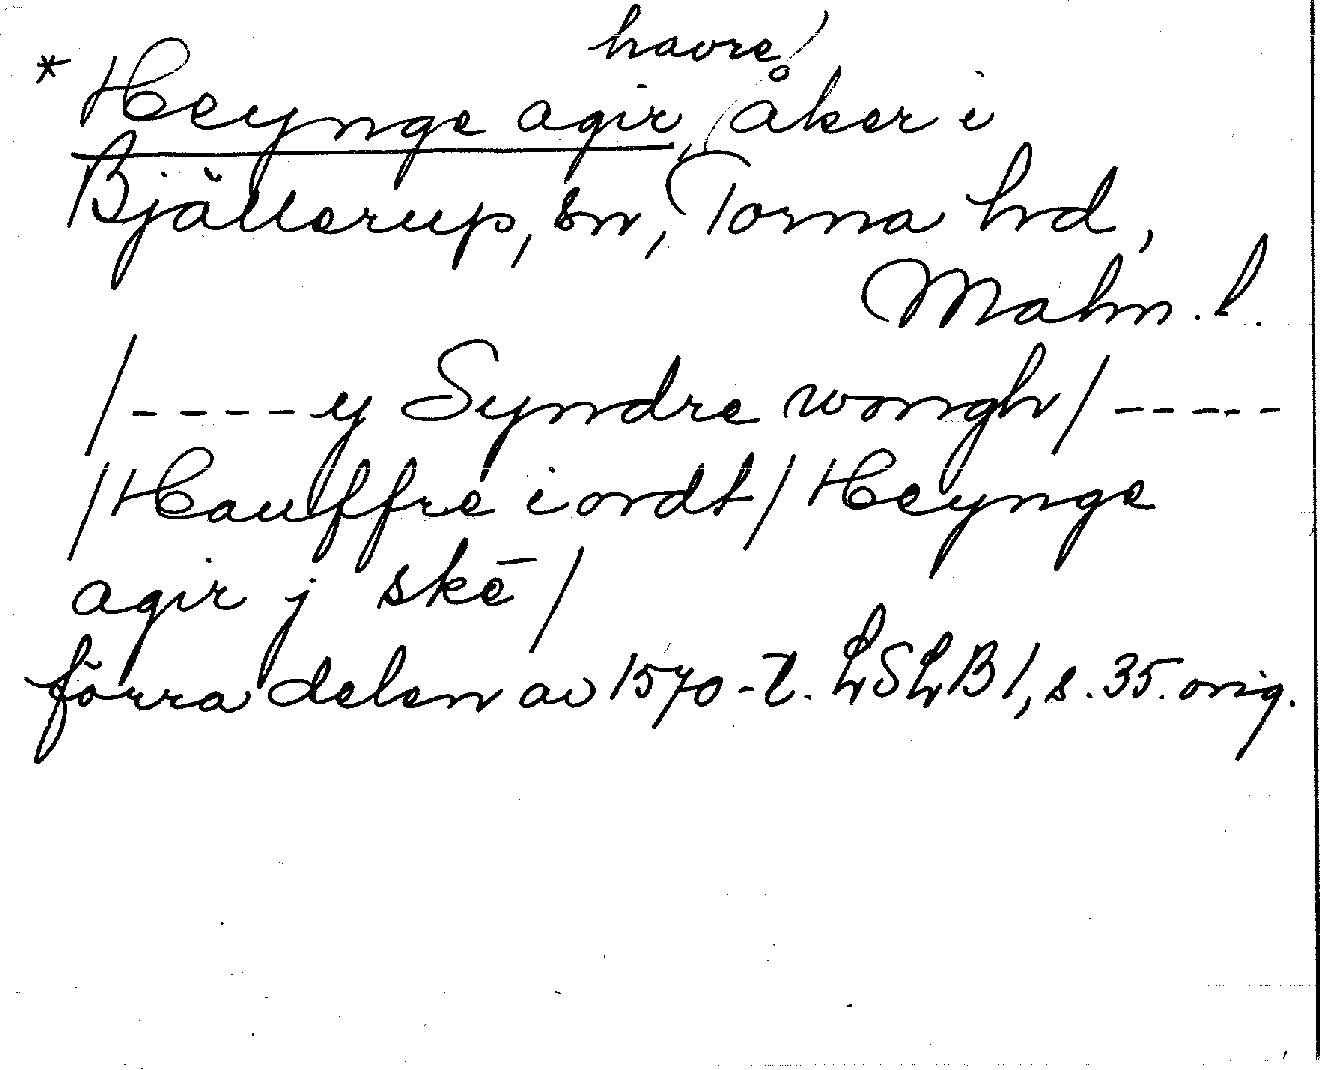 havre/
* Heynge agir, (åker i
Bjällerup, sn, Torna hd,
Malm. l.
/----y Syndre wongh/-----
/Hauffre iordt/Heynge
agir j skē/
förra delen av 1570-t. LSLB 1, s. 35. orig.